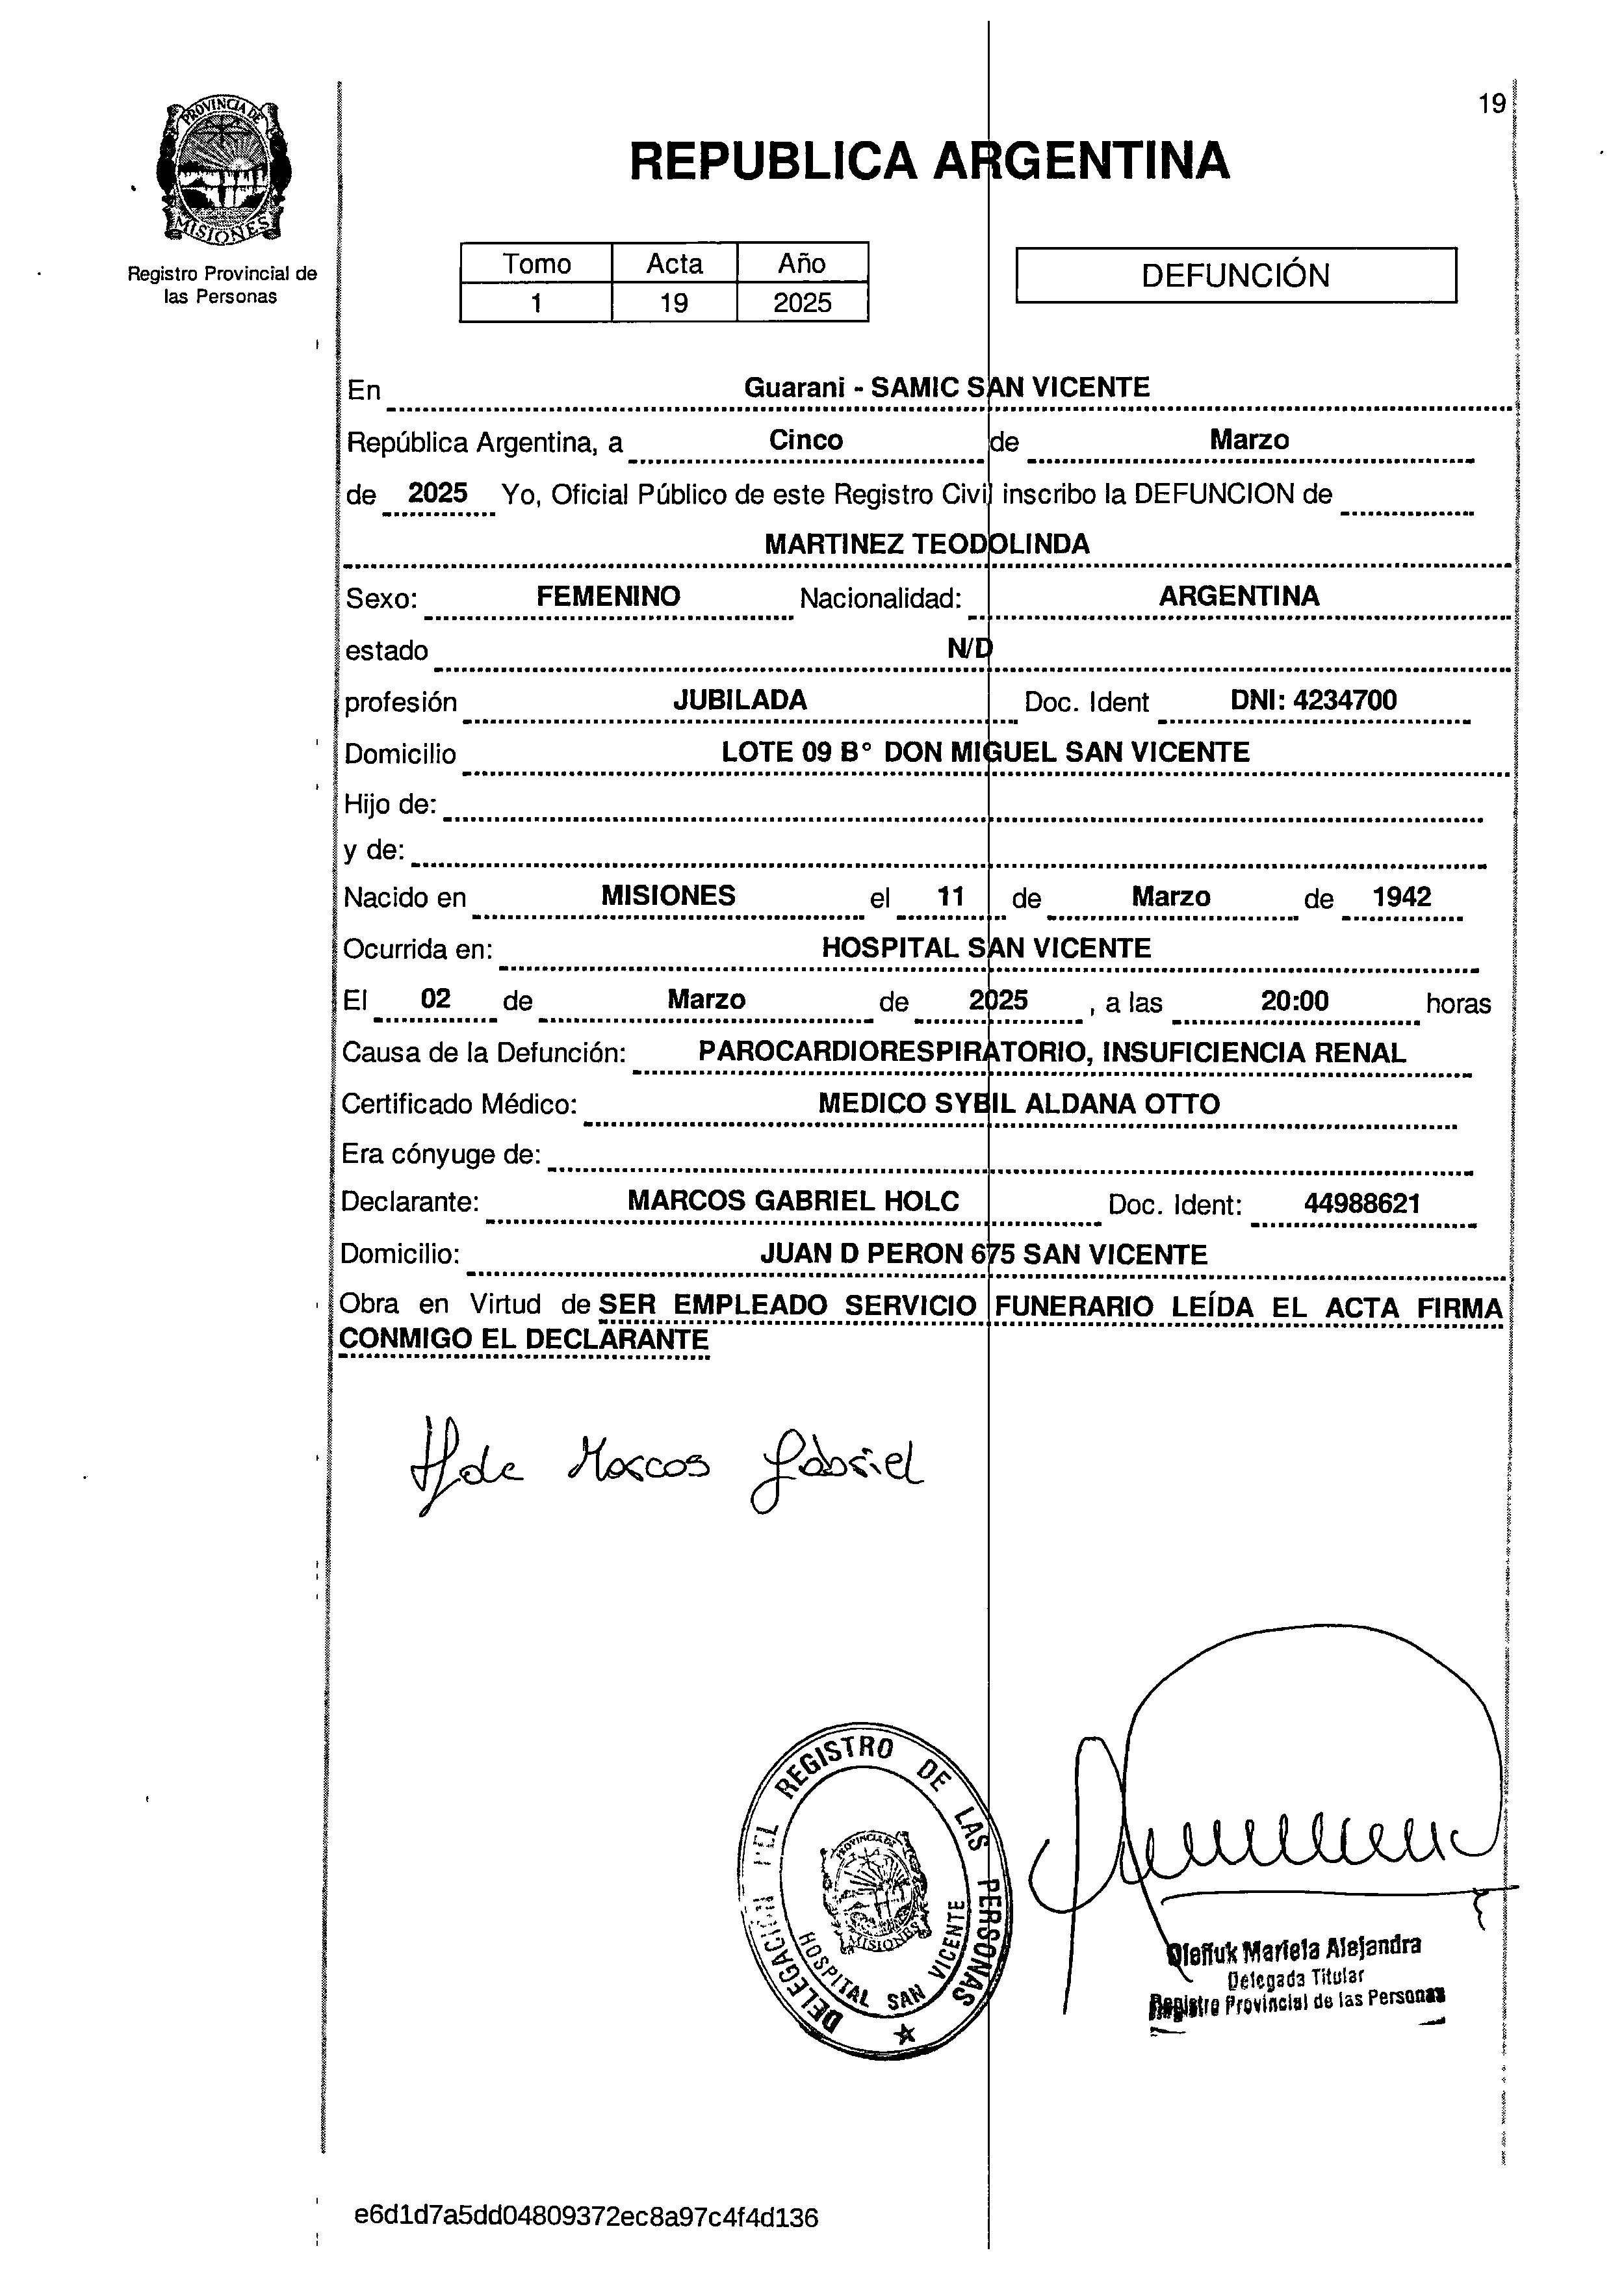 19
PROVINCIA DE
MISIONES
Registro Provincial de
las Personas
REPUBLICA ARGENTINA
Tomo Acta Año
1 19 2025
DEFUNCIÓN
En Guarani - SAMIC SAN VICENTE
República Argentina, a Cinco de Marzo
de 2025 Yo, Oficial Público de este Registro Civil inscribo la DEFUNCION de
MARTINEZ TEODOLINDA
Sexo: FEMENINO Nacionalidad: ARGENTINA
estado N/D
profesión JUBILADA Doc. Ident DNI: 4234700
Domicilio LOTE 09 B° DON MIGUEL SAN VICENTE
Hijo de:
y de:
Nacido en MISIONES el 11 de Marzo de 1942
Ocurrida en: HOSPITAL SAN VICENTE
El 02 de Marzo de 2025 , a las 20:00 horas
Causa de la Defunción: PAROCARDIORESPIRATORIO, INSUFICIENCIA RENAL
Certificado Médico: MEDICO SYBIL ALDANA OTTO
Era cónyuge de:
Declarante: MARCOS GABRIEL HOLC Doc. Ident: 44988621
Domicilio: JUAN D PERON 675 SAN VICENTE
Obra en Virtud de SER EMPLEADO SERVICIO FUNERARIO LEÍDA EL ACTA FIRMA
CONMIGO EL DECLARANTE
Marcos Gabriel
DELEGACION DEL REGISTRO DE LAS PERSONAS
PROVINCIA DE
MISIONES
HOSPITAL SAN VICENTE
Mariela Alejandra
Delegada Titular
Registro Provincial de las Personas
e6d1d7a5dd04809372ec8a97c4f4d136